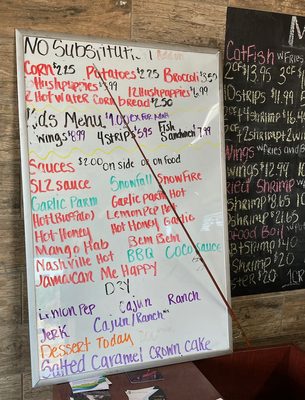 NO Substitution
Corn $2.25 Potatoes $2.25 Broccoli $3.50
Hushpuppies $.99 12 Hushpuppies $6.99
2 Hot water Corn bread $2.50
Kids Menu $1.00 EXTRA
Wings $8.99 4 Strips $6.95 Fish Sandwich $7.99
Sauces $2.00 on side or on food
SLZ sauce Snowfall SnowFire
Garlic Parm Garlic parm Hot
Hot (Buffalo) Lemon Pep Hot
Hot Honey Hot Honey Garlic
Mango Hab Bem Bem
Nashville Hot BBQ Coco Sauce
Jamaican Me Happy
DRY
Lemon Pep Cajun Ranch
Jerk Cajun/Ranch
Dessert Today
Salted Caramel Crown Cake
M
Catfish w/Fries
2 CF $13.95 3 CF
10 Strips $11.99
4 Strips
Wings w/Fries
Wings $12.99
Fried Shrimp
Shrimp $8.65
Shrimp
Shrimp $21.65
Seafood Boil